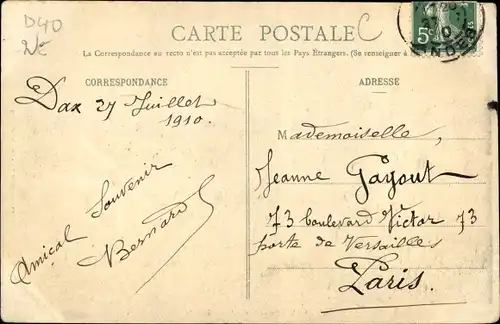 D40
CARTE POSTALE
C
La Correspondance au recto n'est pas acceptée par tous les Pays Étrangers. (Se renseigner à
5c
CORRESPONDANCE
ADRESSE
Dax 27 Juillet
1910.
Amical Souvenir
Bernard
Mademoiselle,
Jeanne Payout
73 boulevard Victor 73
porte de Versailles
Paris.